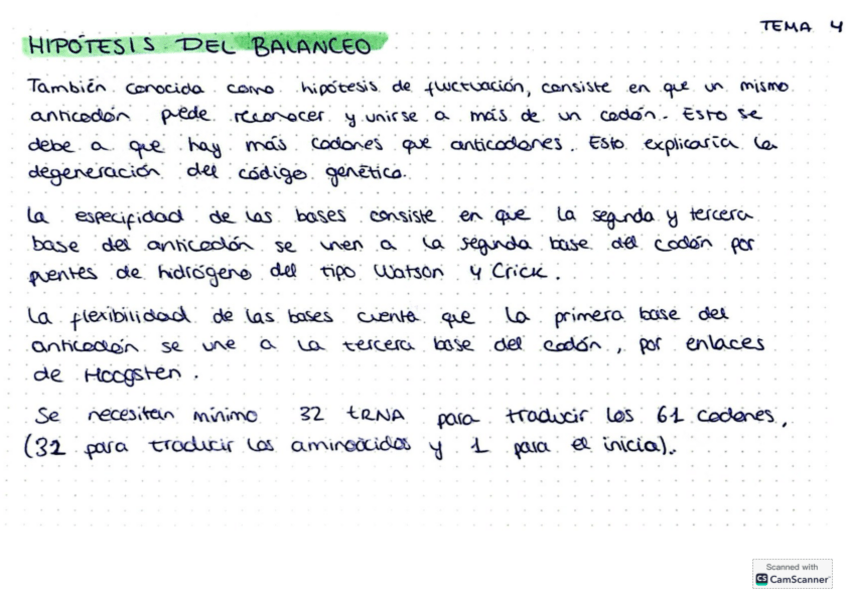 TEMA 4
HIPÓTESIS DEL BALANCEO
También conocida como hipótesis de fluctuación, consiste en que un mismo
anticodón puede reconocer y unirse a más de un codón. Esto se
debe a que hay más codones que anticodones. Esto explicaría la
degeneración del código genético.
La especifidad de las bases consiste en que la segunda y tercera
base del anticodón se unen a la segunda base del codón por
puentes de hidrógeno del tipo Watson y Crick.
La flexibilidad de las bases cuenta que la primera base del
anticodón se une a la tercera base del codón, por enlaces
de Hoogsten.
Se necesitan mínimo 32 tRNA para traducir los 61 codones,
(32 para traducir los aminoácidos y 1 para el inicia).
Scanned with
CS CamScanner